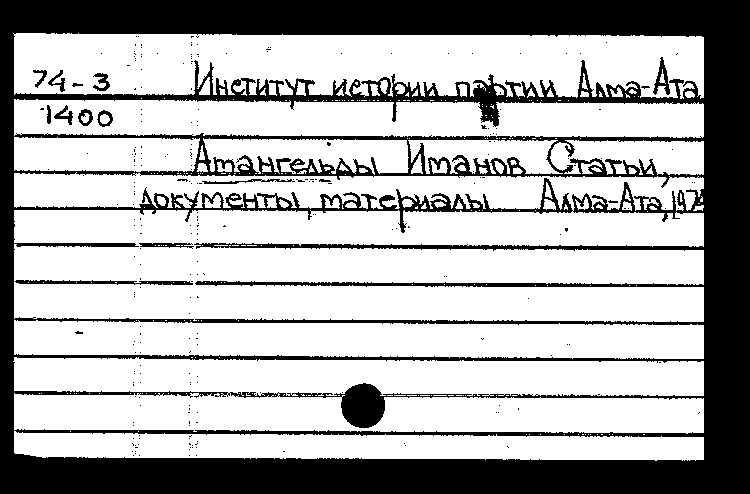 74-3 Институт истории партии Алма-Ата
1400
Амангельды Иманов Статьи,
документы, материалы Алма-Ата, 1974